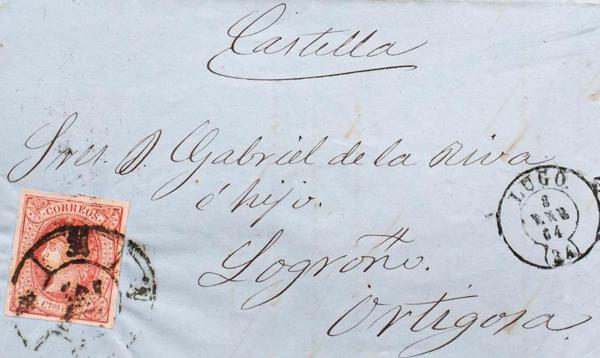 Castilla
Sres. D. Gabriel de la Riva
é hijo.
Logroño.
Ortigosa
CORREOS
LUGO.
8
ENE
64